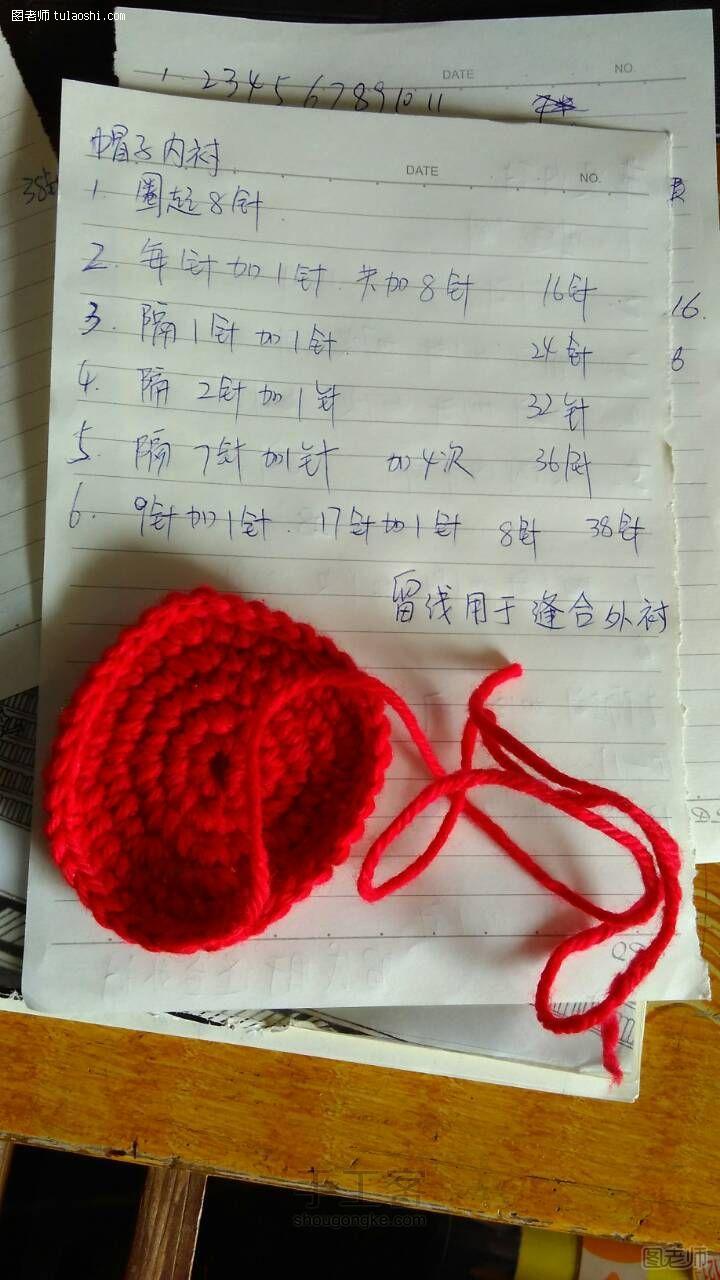 图老师 tulaoshi.com
DATE NO.
1 2 3 4 5 6 7 8 9 10 11
38针
帽子内衬
DATE NO.
1. 圈起8针
2. 每1针加1针 共加8针 16针
16.
3. 隔1针加1针 24针
8
4. 隔2针加1针 32针
5. 隔7针加1针 加4次 36针
6. 9针加1针. 17针加1针 8针 38针
留线用于缝合外衬
手工客
shougongke.com
图老师